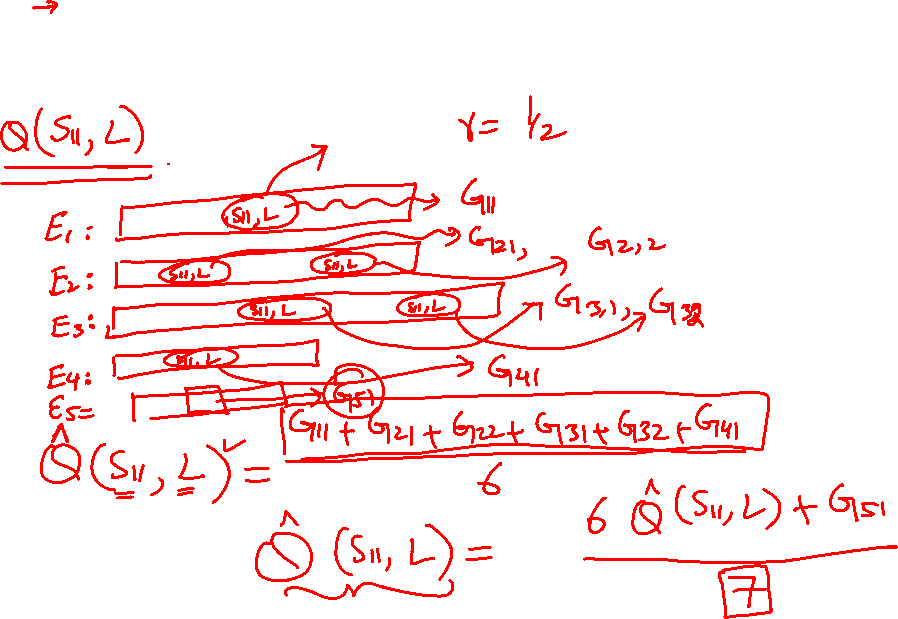 →
Q(S11, L)
γ = 1/2
E1: S11, L → G11
E2: S11, L S11, L → G21, G2,2
E3: S11, L S11, L → G3,1, G32
E4: S11, L → G41
E5= → G51
Q̂(S11, L) = (G11 + G21 + G22 + G31 + G32 + G41) / 6
Q̂(S11, L) = (6 Q̂(S11, L) + G51) / 7